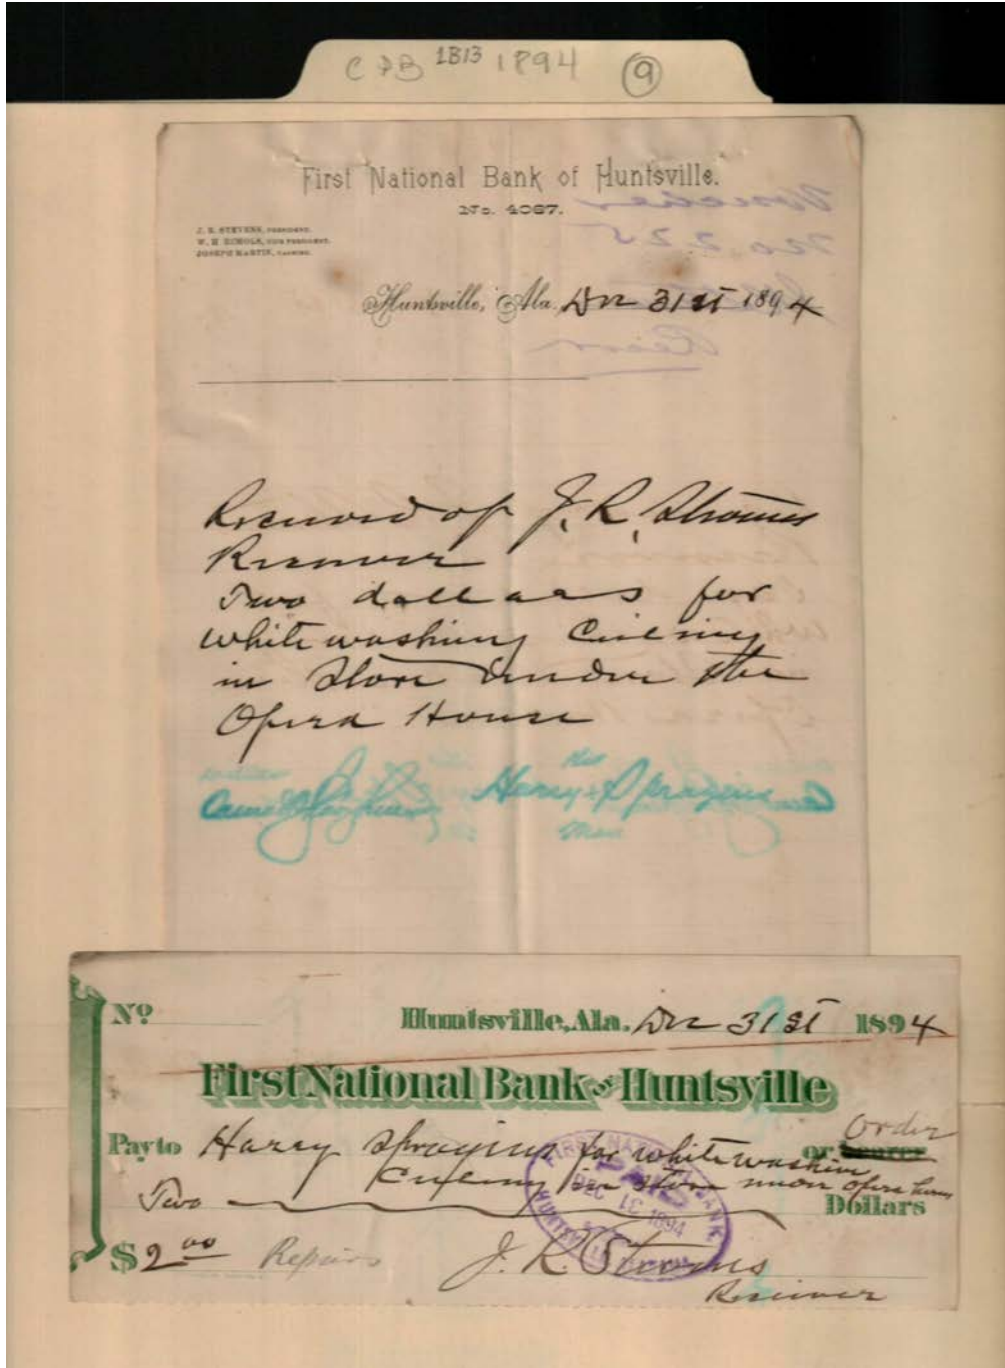 CDB 1B13 1894 9
First National Bank of Huntsville.
No. 4067.
J. R. STEVENS, PRESIDENT.
W. H. ECHOLS, VICE PRESIDENT.
JOSEPH MARTIN, CASHIER.
Voucher
No 225
Huntsville, Ala. Dec 31st 1894
Received of J. R. Stevens
Receiver
Two dollars for
white washing Ceiling
in Store under the
Opera House
his
Harry Spragins
Mark
No
Huntsville, Ala. Dec 31st 1894
First National Bank of Huntsville
order
Pay to Harry Spragins for white washing or bearer
Ceiling in store under opera house
Two Dollars
FIRST NATIONAL BANK
PAID
DEC 1894
HUNTSVILLE
$2.00 Repairs J. R. Stevens
Receiver